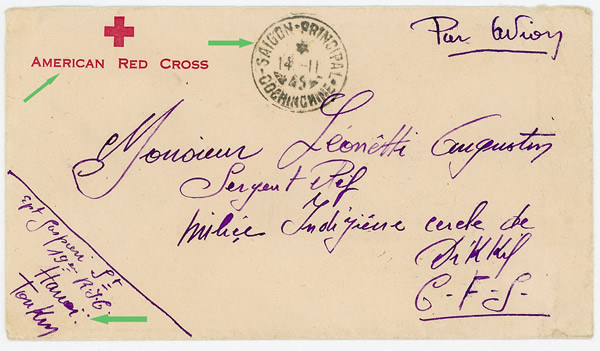 AMERICAN RED CROSS
SAIGON-PRINCIPAL
14-11
45
COCHINCHINE
Par Avion
Monsieur Léonetti Augustin
Sergent
milice Indigène cercle de
Dikkil
C-F-S-
19e R.I.C.
Hanoi
Tonkin